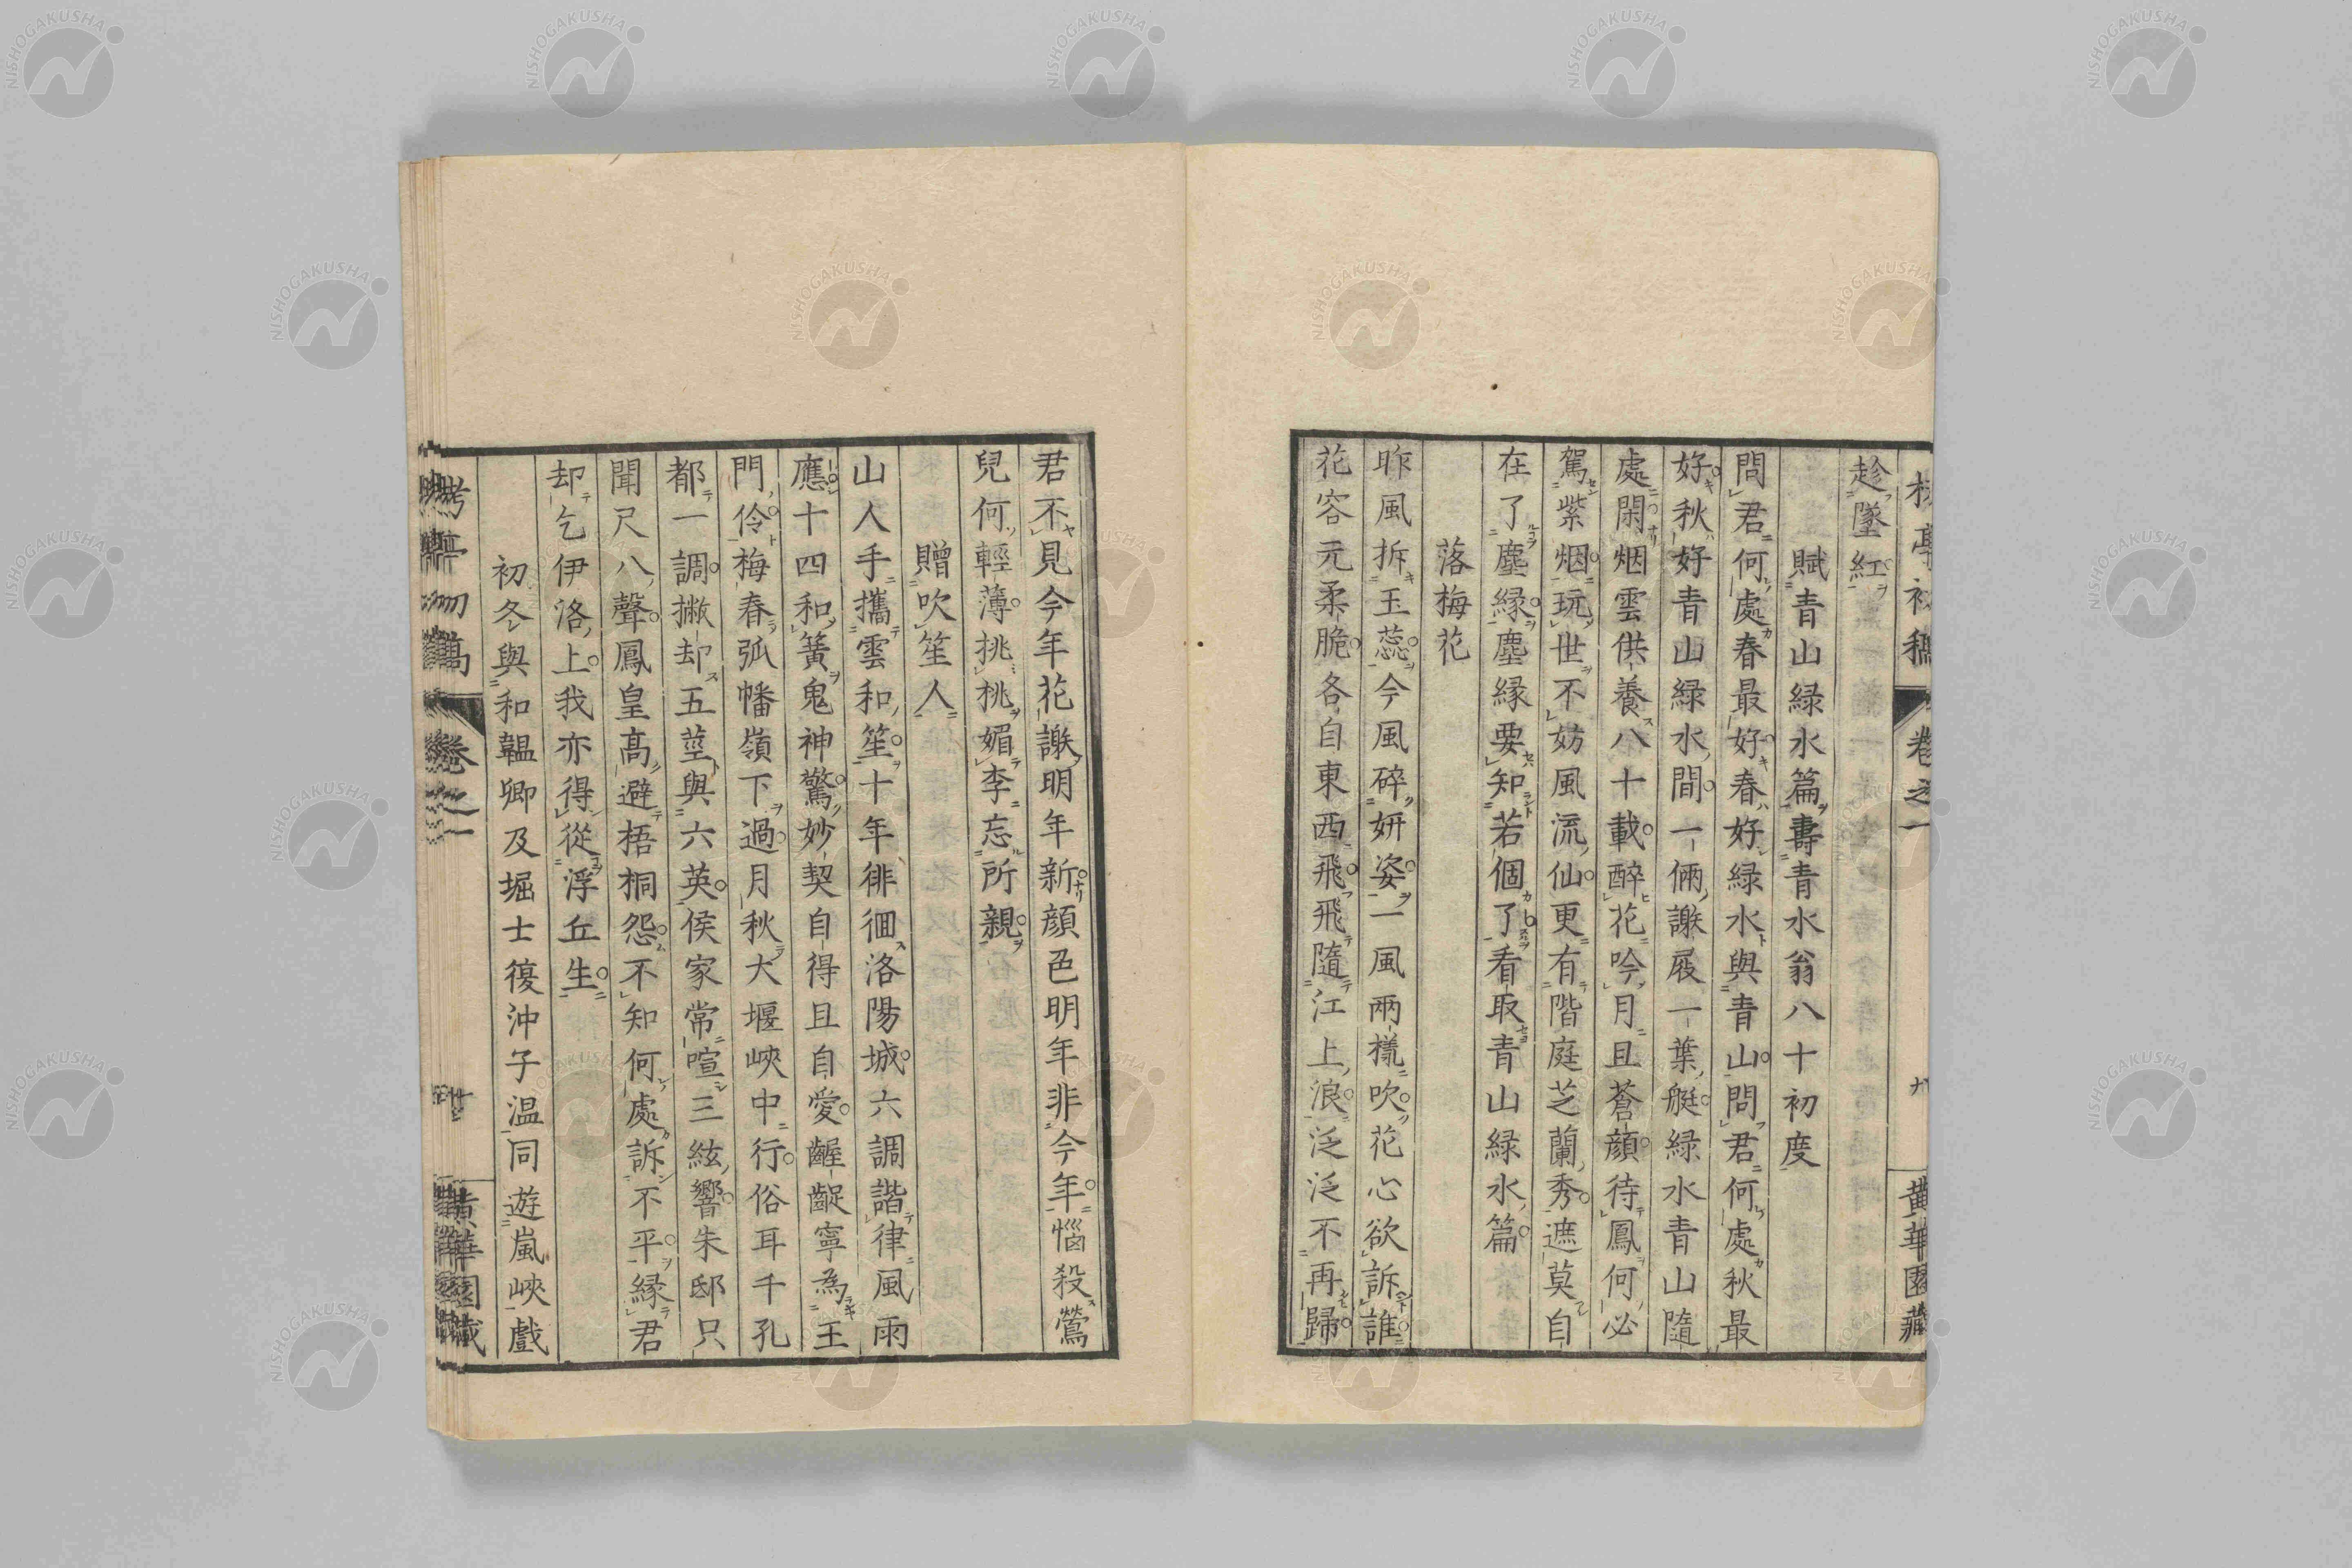 亭初稿 卷之一 黄華園藏
趁墜紅
賦青山緑水篇壽青水翁八十初度
問君何處春最好春好緑水與青山問君何處秋最
好秋好青山緑水間一倆謝屐一葉艇緑水青山隨
處閑烟雲供養八十載醉花吟月且蒼顔待鳳何必
駕紫烟玩世不妨風流仙更有階庭芝蘭秀遮莫自
在了塵縁塵縁要知若個了看取青山緑水篇
落梅花
昨風拆玉蕊今風碎妍姿一風兩樣吹花心欲訴誰
花容元柔脆各自東西飛飛隨江上浪泛泛不再歸
君不見今年花謝明年新顔色明年非今年惱殺鶯
兒何輕薄挑桃媚李忘所親
贈吹笙人
山人手攜雲和笙十年徘徊洛陽城六調諧律風雨
應十四和簧鬼神驚妙契自得且自愛齷齪寧為王
門伶梅春弧幡嶺下過月秋大堰峽中行俗耳千孔
都一調撇却五莖與六英侯家常喧三絃響朱邸只
聞尺八聲鳳皇高避梧桐怨不知何處訴不平縁君
却乞伊洛上我亦得從浮丘生
初冬與和韞卿及堀士復沖子温同遊嵐峽戲
亭初稿 卷之一 黄華園藏
NISHOGAKUSHA